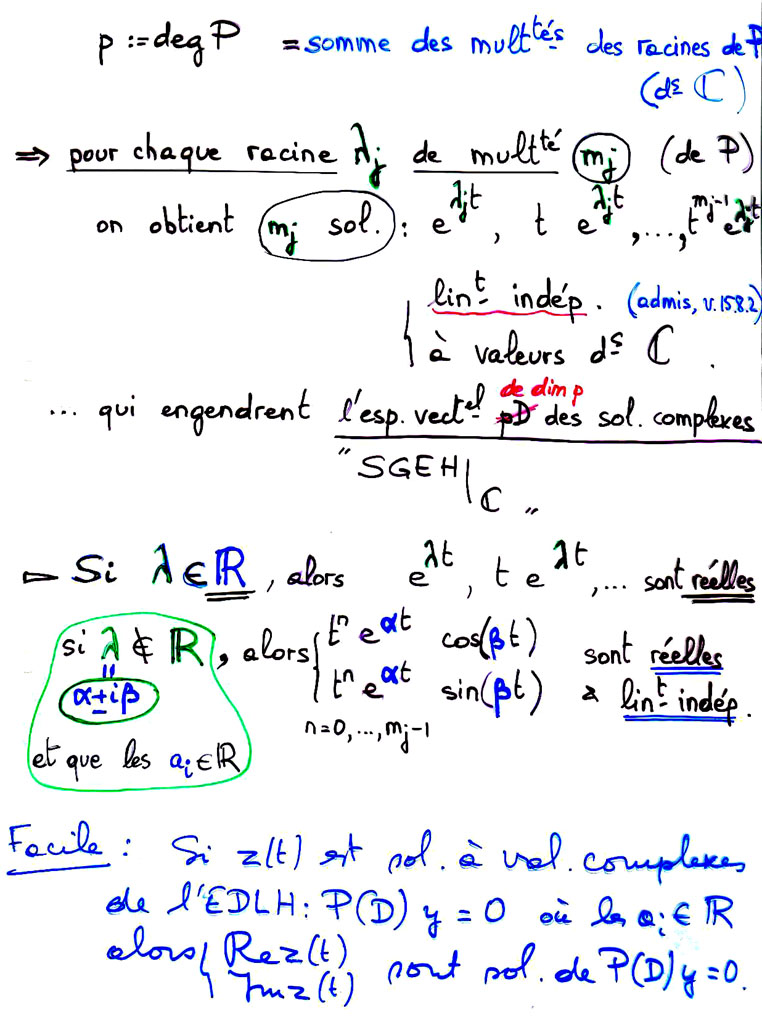 p := deg P = somme des mult^tés des racines de P
(d^s ℂ)
⇒ pour chaque racine λ_j de mult^té m_j (de P)
on obtient m_j sol. : e^{λ_j t}, t e^{λ_j t}, ..., t^{m_j-1} e^{λ_j t}
lin^t indép. (admis, v. 15.8.2)
à valeurs d^s ℂ.
de dim p
... qui engendrent l'esp. vect^el pD des sol. complexes
"SGEH|_ℂ"
▻ Si λ ∈ ℝ, alors e^{λt}, t e^{λt}, ... sont réelles
si λ ∉ ℝ, alors { t^n e^{αt} cos(βt) sont réelles
α±iβ t^n e^{αt} sin(βt) & lin^t indép.
n=0,...,m_j-1
et que les a_i ∈ ℝ
Facile : Si z(t) est sol. à val. complexes
de l'EDLH: P(D) y = 0 où les a_i ∈ ℝ
alors { Re z(t)
Im z(t) sont sol. de P(D) y = 0.